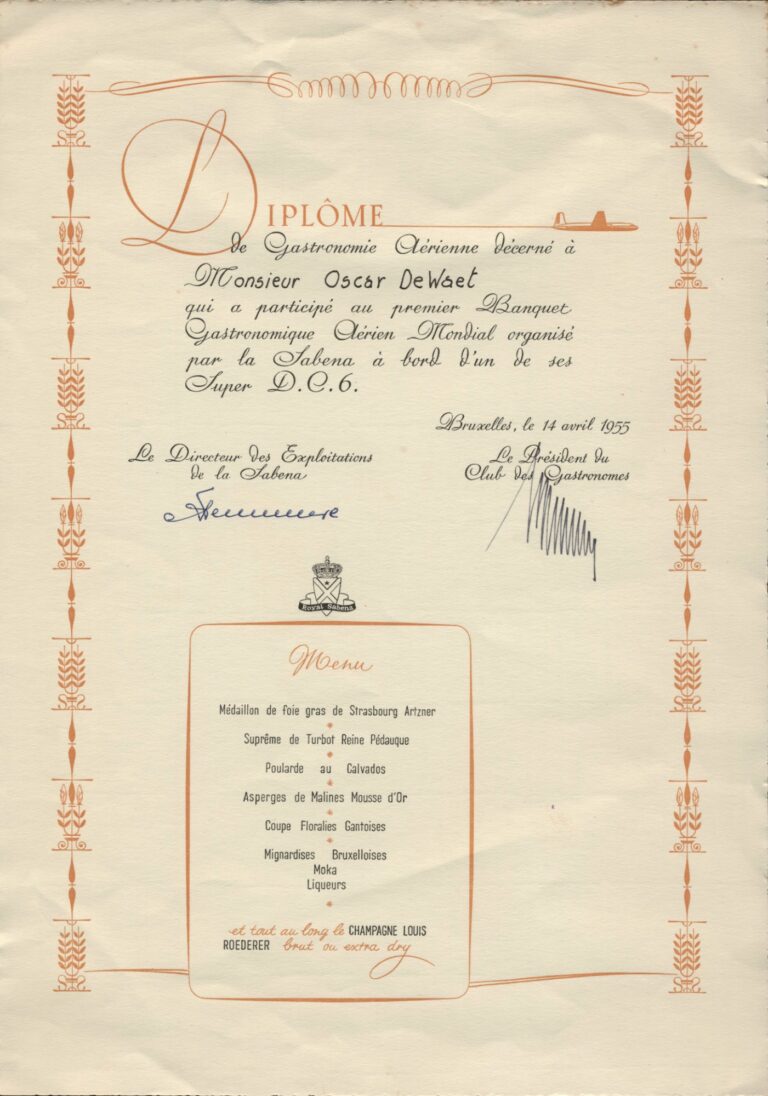 DIPLÔME
de Gastronomie Aérienne décerné à
Monsieur Oscar DeWaet
qui a participé au premier Banquet
Gastronomique Aérien Mondial organisé
par la Sabena à bord d'un de ses
Super D.C.6.
Bruxelles, le 14 avril 1955
Le Directeur des Exploitations
de la Sabena
Le Président du
Club des Gastronomes
Royal Sabena
Menu
Médaillon de foie gras de Strasbourg Artzner
Suprême de Turbot Reine Pédauque
Poularde au Calvados
Asperges de Malines Mousse d'Or
Coupe Floralies Gantoises
Mignardises Bruxelloises
Moka
Liqueurs
et tout au long le CHAMPAGNE LOUIS
ROEDERER brut ou extra dry